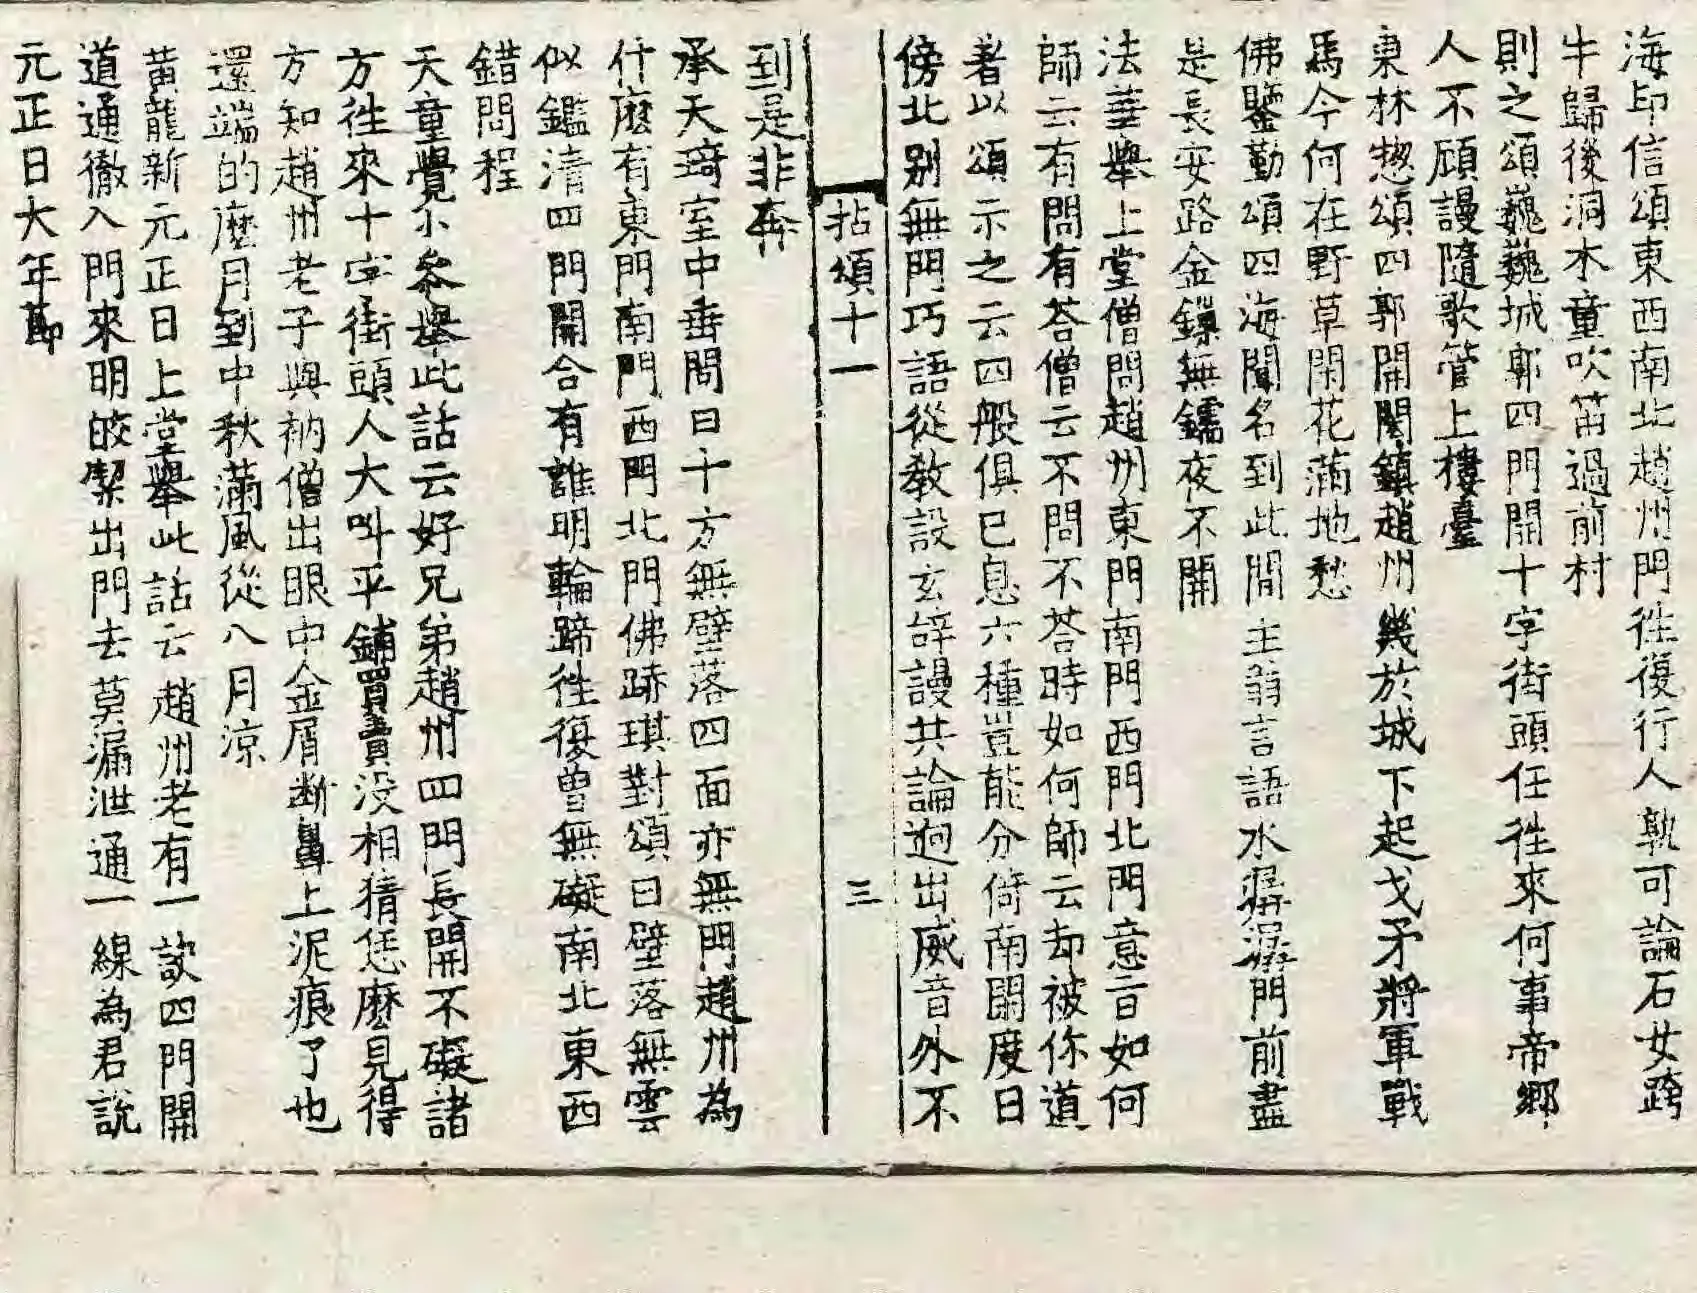 海印信頌東西南北趙州門徃復行人孰可論石女跨
牛歸後洞木童吹笛過前村
則之頌巍巍城郭四門開十字街頭任徃來何事帝鄉
人不頋謾隨歌管上樓臺
東林惣頌四郭開闤鎮趙州幾於城下起戈矛將軍戰
馬今何在野草閑花滿地愁
佛鑒勤頌四海聞名到此間主翁言語水潺潺門前盡
是長安路金鏁無鑐夜不開
法華舉上堂僧問趙州東門南門西門北門意旨如何
師云有問有荅僧云不問不荅時如何師云却被你道
著以頌示之云四般俱已息六種豈能分倚南闘度日
傍北別無門巧語從教設玄辝謾共論逈出威音外不
拈頌十一 三
到是非奔
承天琦室中垂問曰十方無壁落四面亦無門趙州為
什麽有東門南門西門北門佛跡琪對頌曰壁落無雲
似鑑清四門開合有誰明輪蹄徃復曽無礙南北東西
錯問程
天童覺小叅舉此話云好兄弟趙州四門長開不礙諸
方徃來十字街頭人大叫平鋪買賣没相猜恁麽見得
方知趙州老子與衲僧出眼中金屑断鼻上泥痕了也
還端的麽月到中秋滿風從八月凉
黄龍新元正日上堂舉此話云趙州老有一訣四門開
道通徹入門來明皎潔出門去莫漏泄通一線為君説
元正日大年節